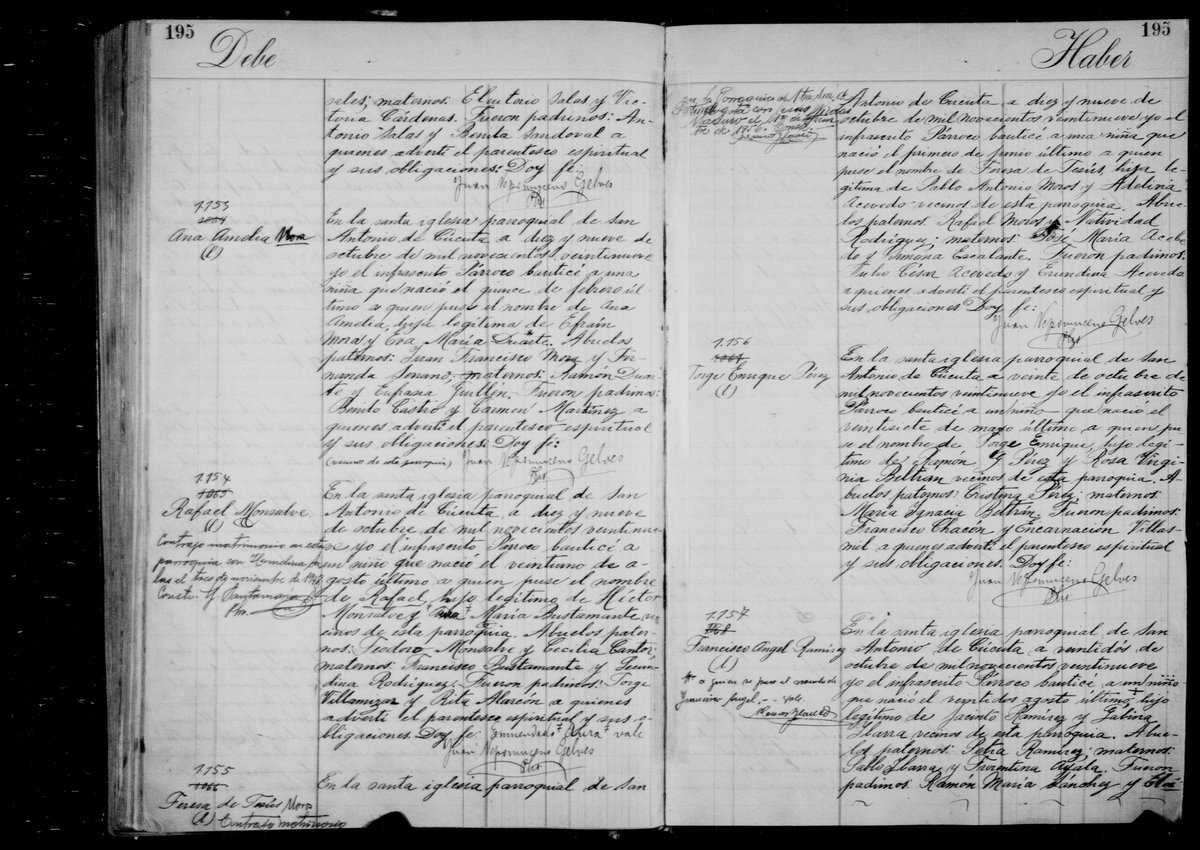 195
Debe
sales; maternos: Eleuterio Salas y Vic-
toria Cárdenas. Fueron padrinos: An-
tonio Salas y Benita Sandoval a
quienes advertí el parentesco espiritual
y sus obligaciones: Doy fe:
Juan Nepomuceno Gelves
Pbro
1.153
Ana Amelia Mora
(l)
En la santa iglesia parroquial de San
Antonio de Cúcuta a diez y nueve de
octubre de mil novecientos veintinueve
yo el infrascrito Párroco bauticé a una
niña que nació el quince de febrero úl-
timo a quien puse el nombre de Ana
Amelia, hija legítima de Efraín
Mora y Eva María Duarte. Abuelos
paternos: Juan Francisco Mora y Fer-
nanda Serrano, maternos: Ramón Duar-
te y Eufrasia Guillén. Fueron padrinos:
Benito Castro y Carmen Martínez a
quienes advertí el parentesco espiritual
y sus obligaciones. Doy fe:
(vecinos de esta parroquia) Juan Nepomuceno Gelves
Pbro
1.154
1065
Rafael Monsalve
(l)
Contrajo matrimonio en esta
parroquia con
el tres de noviembre de
Const.
En la santa iglesia parroquial de San
Antonio de Cúcuta a diez y nueve
de octubre de mil novecientos veintinue-
ve yo el infrascrito Párroco bauticé a
un niño que nació el veintiuno de a-
gosto último a quien puse el nombre
de Rafael, hijo legítimo de Héctor
Monsalve y María Bustamante ve-
cinos de esta parroquia. Abuelos pater-
nos: Teodoro Monsalve y Cecilia Cantor;
maternos: Francisco Bustamante y
Rodríguez: Fueron padrinos: Jorge
Villamizar y Rita Alarcón a quienes
advertí el parentesco espiritual y sus o-
bligaciones. Doy fe: vale
Juan Nepomuceno Gelves
Pbro
1.155
1066
Teresa de Jesús Moros
(l) Contrajo matrimonio
En la santa iglesia parroquial de San
195
Haber
en la Parroquia de Ntra. Sra. de
con
el de
de 1956.
Antonio de Cúcuta a diez y nueve de
octubre de mil novecientos veintinueve yo el
infrascrito Párroco bauticé a una niña que
nació el primero de junio último a quien
puse el nombre de Teresa de Jesús, hija le-
gítima de Pablo Antonio Moros y Adelina
Acevedo vecinos de esta parroquia. Abue-
los paternos: Rafael Moros y Natividad
Rodríguez; maternos: José María Aceve-
do y Simona Escalante. Fueron padrinos:
Julio César Acevedo y Erundina Acevedo
a quienes advertí el parentesco espiritual y
sus obligaciones. Doy fe:
Juan Nepomuceno Gelves
Pbro
1.156
Jorge Enrique Pérez
(l)
En la santa iglesia parroquial de San
Antonio de Cúcuta a veinte de octubre de
mil novecientos veintinueve yo el infrascrito
Párroco bauticé a un niño que nació el
veintisiete de mayo último a quien pu-
se el nombre de Jorge Enrique, hijo legí-
timo de Ramón Pérez y Rosa Virgi-
nia Beltrán vecinos de esta parroquia. A-
buelos paternos: Cristina Pérez; maternos:
María Ignacia Beltrán. Fueron padrinos:
Francisco Chacón y Encarnación Villas-
mil a quienes advertí el parentesco espiritual
y sus obligaciones. Doy fe:
Juan Nepomuceno Gelves
Pbro
1.157
Francisco Angel Ramírez
(l)
a quien se puso el nombre de
Francisco Angel. - vale
En la santa iglesia parroquial de San
Antonio de Cúcuta a veintidós de
octubre de mil novecientos veintinueve
yo el infrascrito Párroco bauticé a un niño
que nació el veintidós agosto último, hijo
legítimo de Jacinto Ramírez y Gabina
Ibarra vecinos de esta parroquia. Abue-
los paternos: Petra Ramírez; maternos:
Pablo Ibarra y Florentina Ayala. Fueron
padrinos: Ramón María Sánchez y